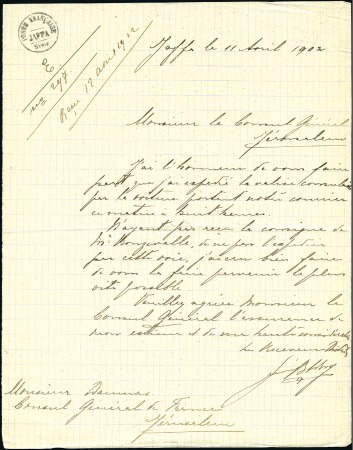 POSTE FRANÇAISE
JAFFA
Syrie
E
N° 297
Reçu 12 avril 1902
Jaffa le 11 Avril 1902
Monsieur le Consul Général
Jérusalem
J'ai l'honneur de vous faire
part que j'ai expédié la valise consulaire
par la voiture portant notre courrier
ce matin à huit heures.
N'ayant pas reçu la consigne de
Mr de ne pas l'expédier
par cette voie, j'ai cru bien faire
de vous la faire parvenir le plus
vite possible
Veuillez agréer Monsieur le
Consul Général l'assurance de
mon estime & de ma haute considération
Le Receveur
Monsieur Daumas
Consul Général de France
Jérusalem